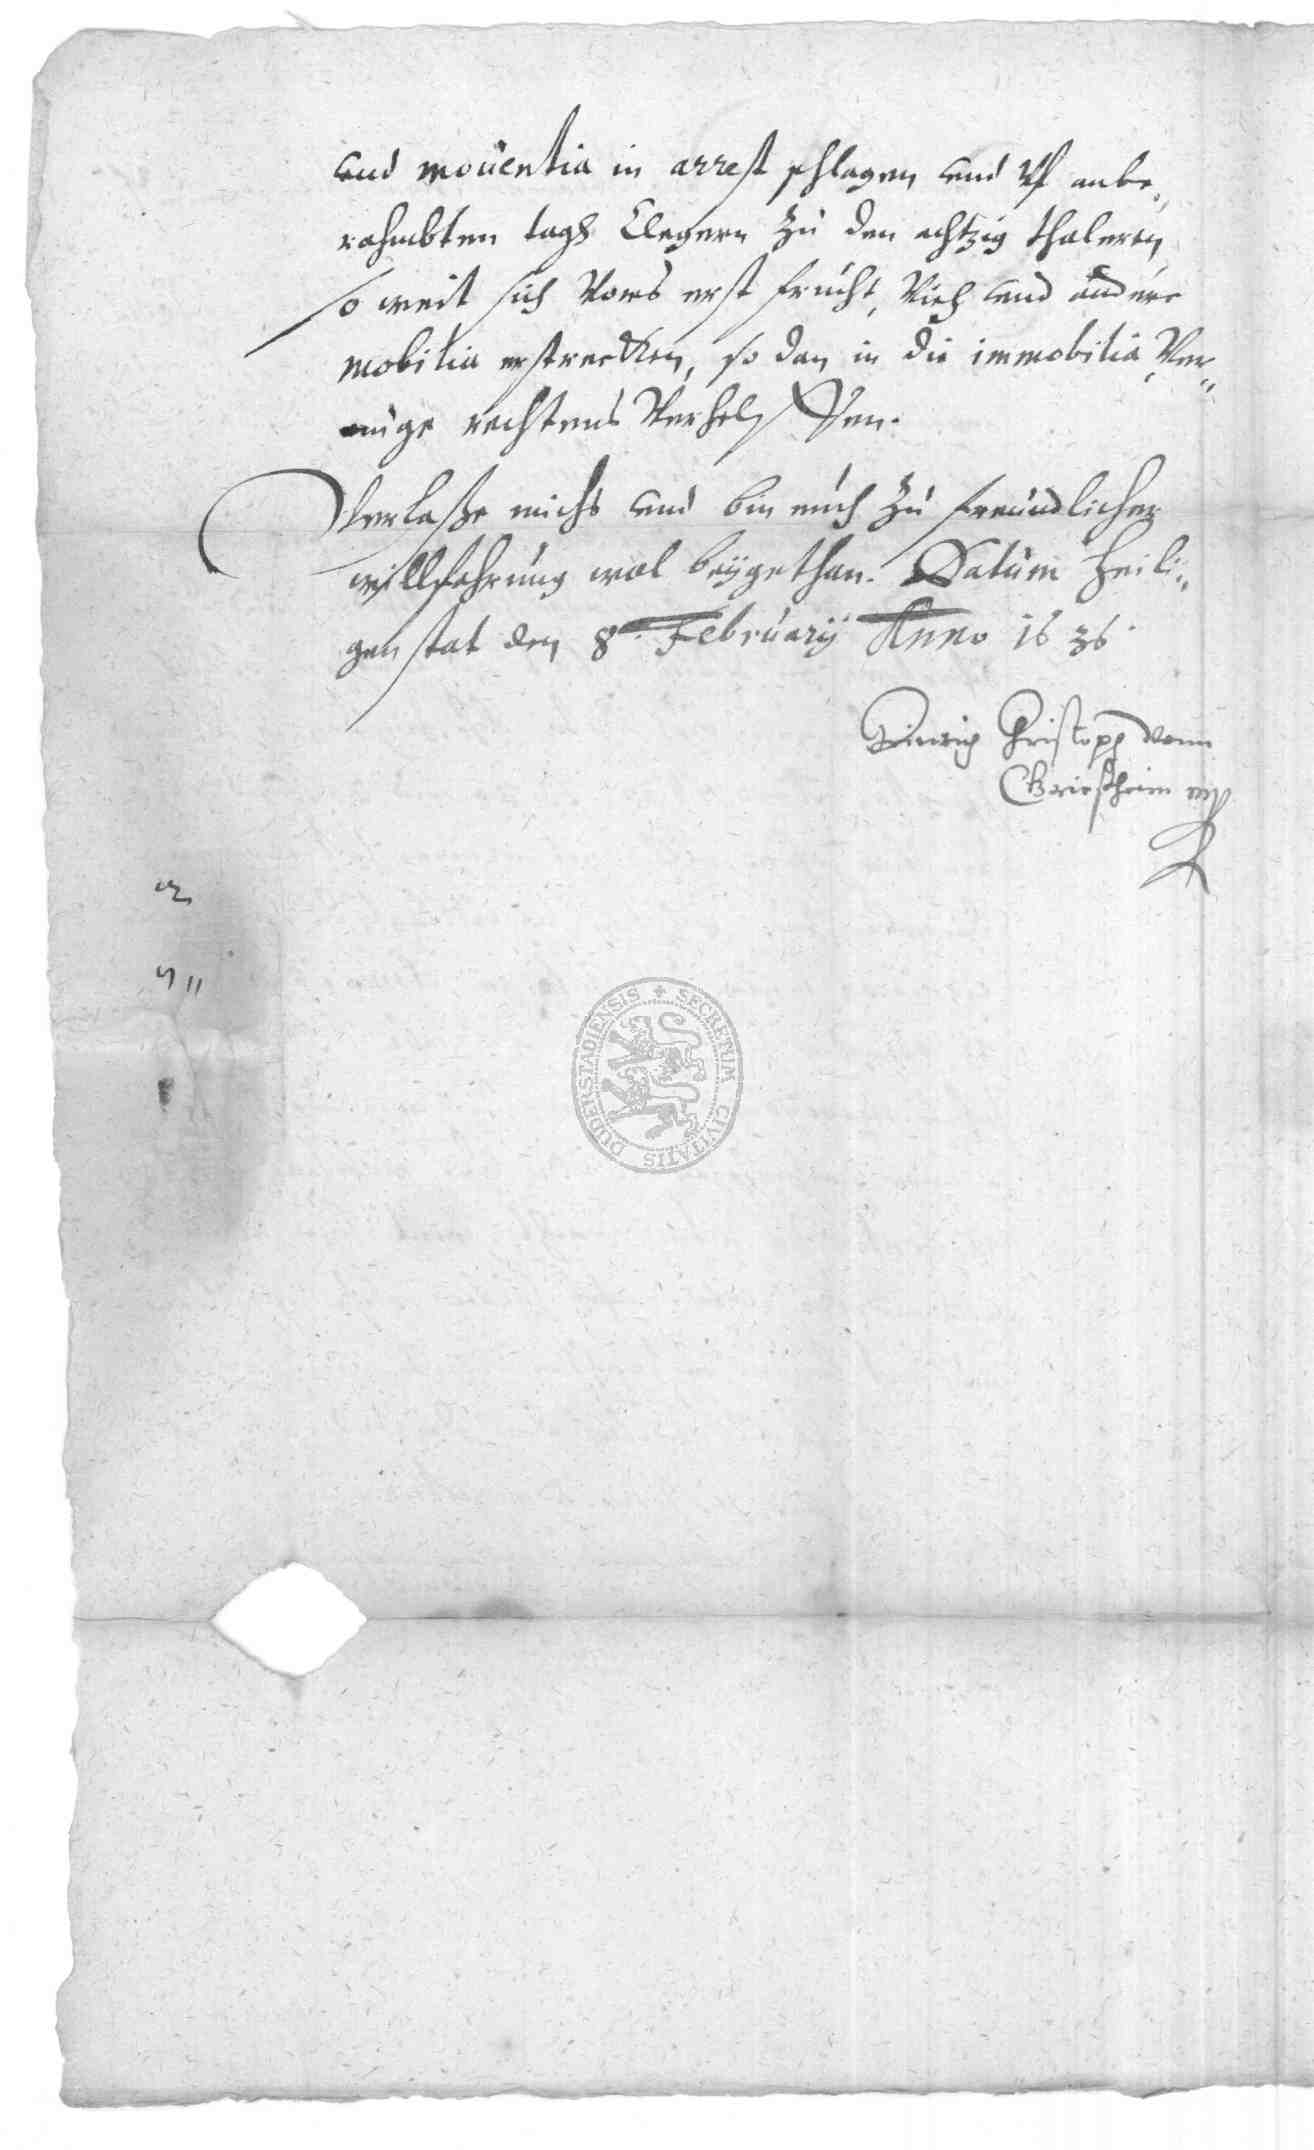 und mouentia in arrest schlagen und vf anbe,,
rahmbten tagh Clegern zu den achtzig thaleren
so weit sich vors erst frucht, Vieh und andere
mobilia erstrecken, so dan in die immobilia Ver,,
muge rechtens verhelffen.
Verlaße michs und bin euch zu freundlicher
willfahrung wol beygethan. Datum Heili,,
genstat den 8. February Anno 1636.
Hinrich Christoph vonn
Griestheim mp
DUDERSTADIENSIS + SECRETUM CIVITATIS